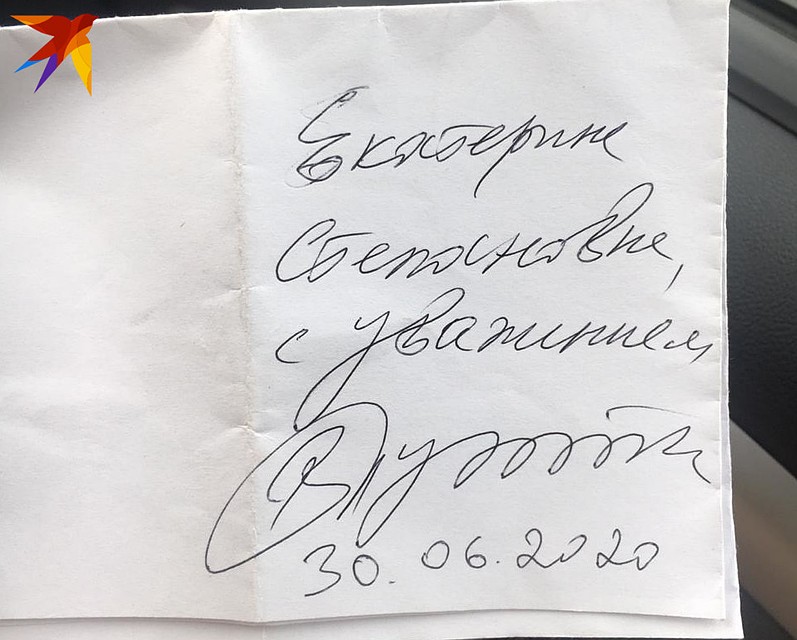 Екатерине
Степановне,
с уважением
ВПутин
30.06.2020